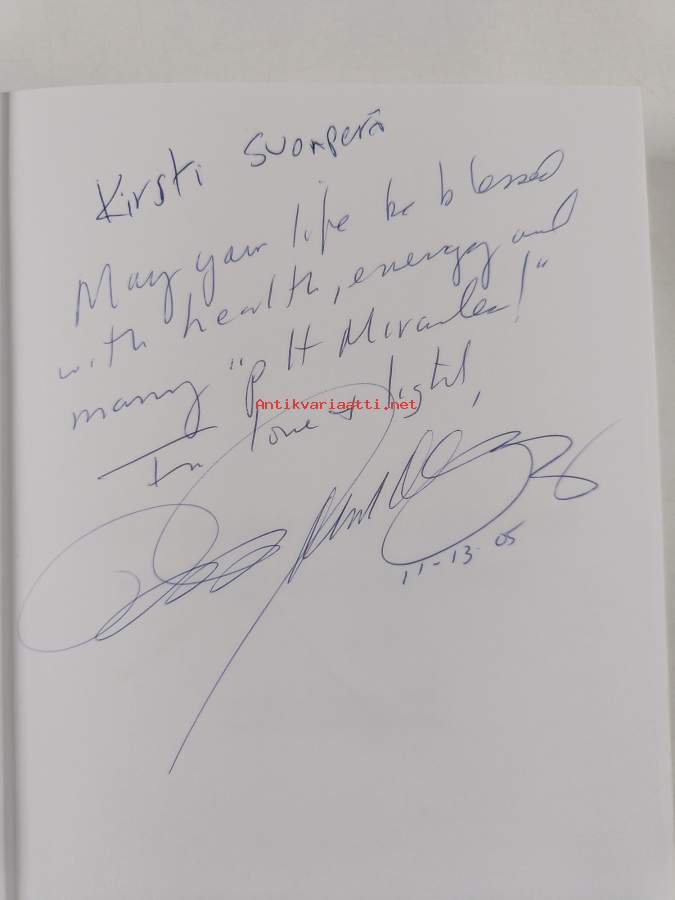 Kirsti Suonperä
May your life be blessed
with health, energy and
many "pH Miracles!"
Antikvariaatti.net
In love & light,
11-13-05